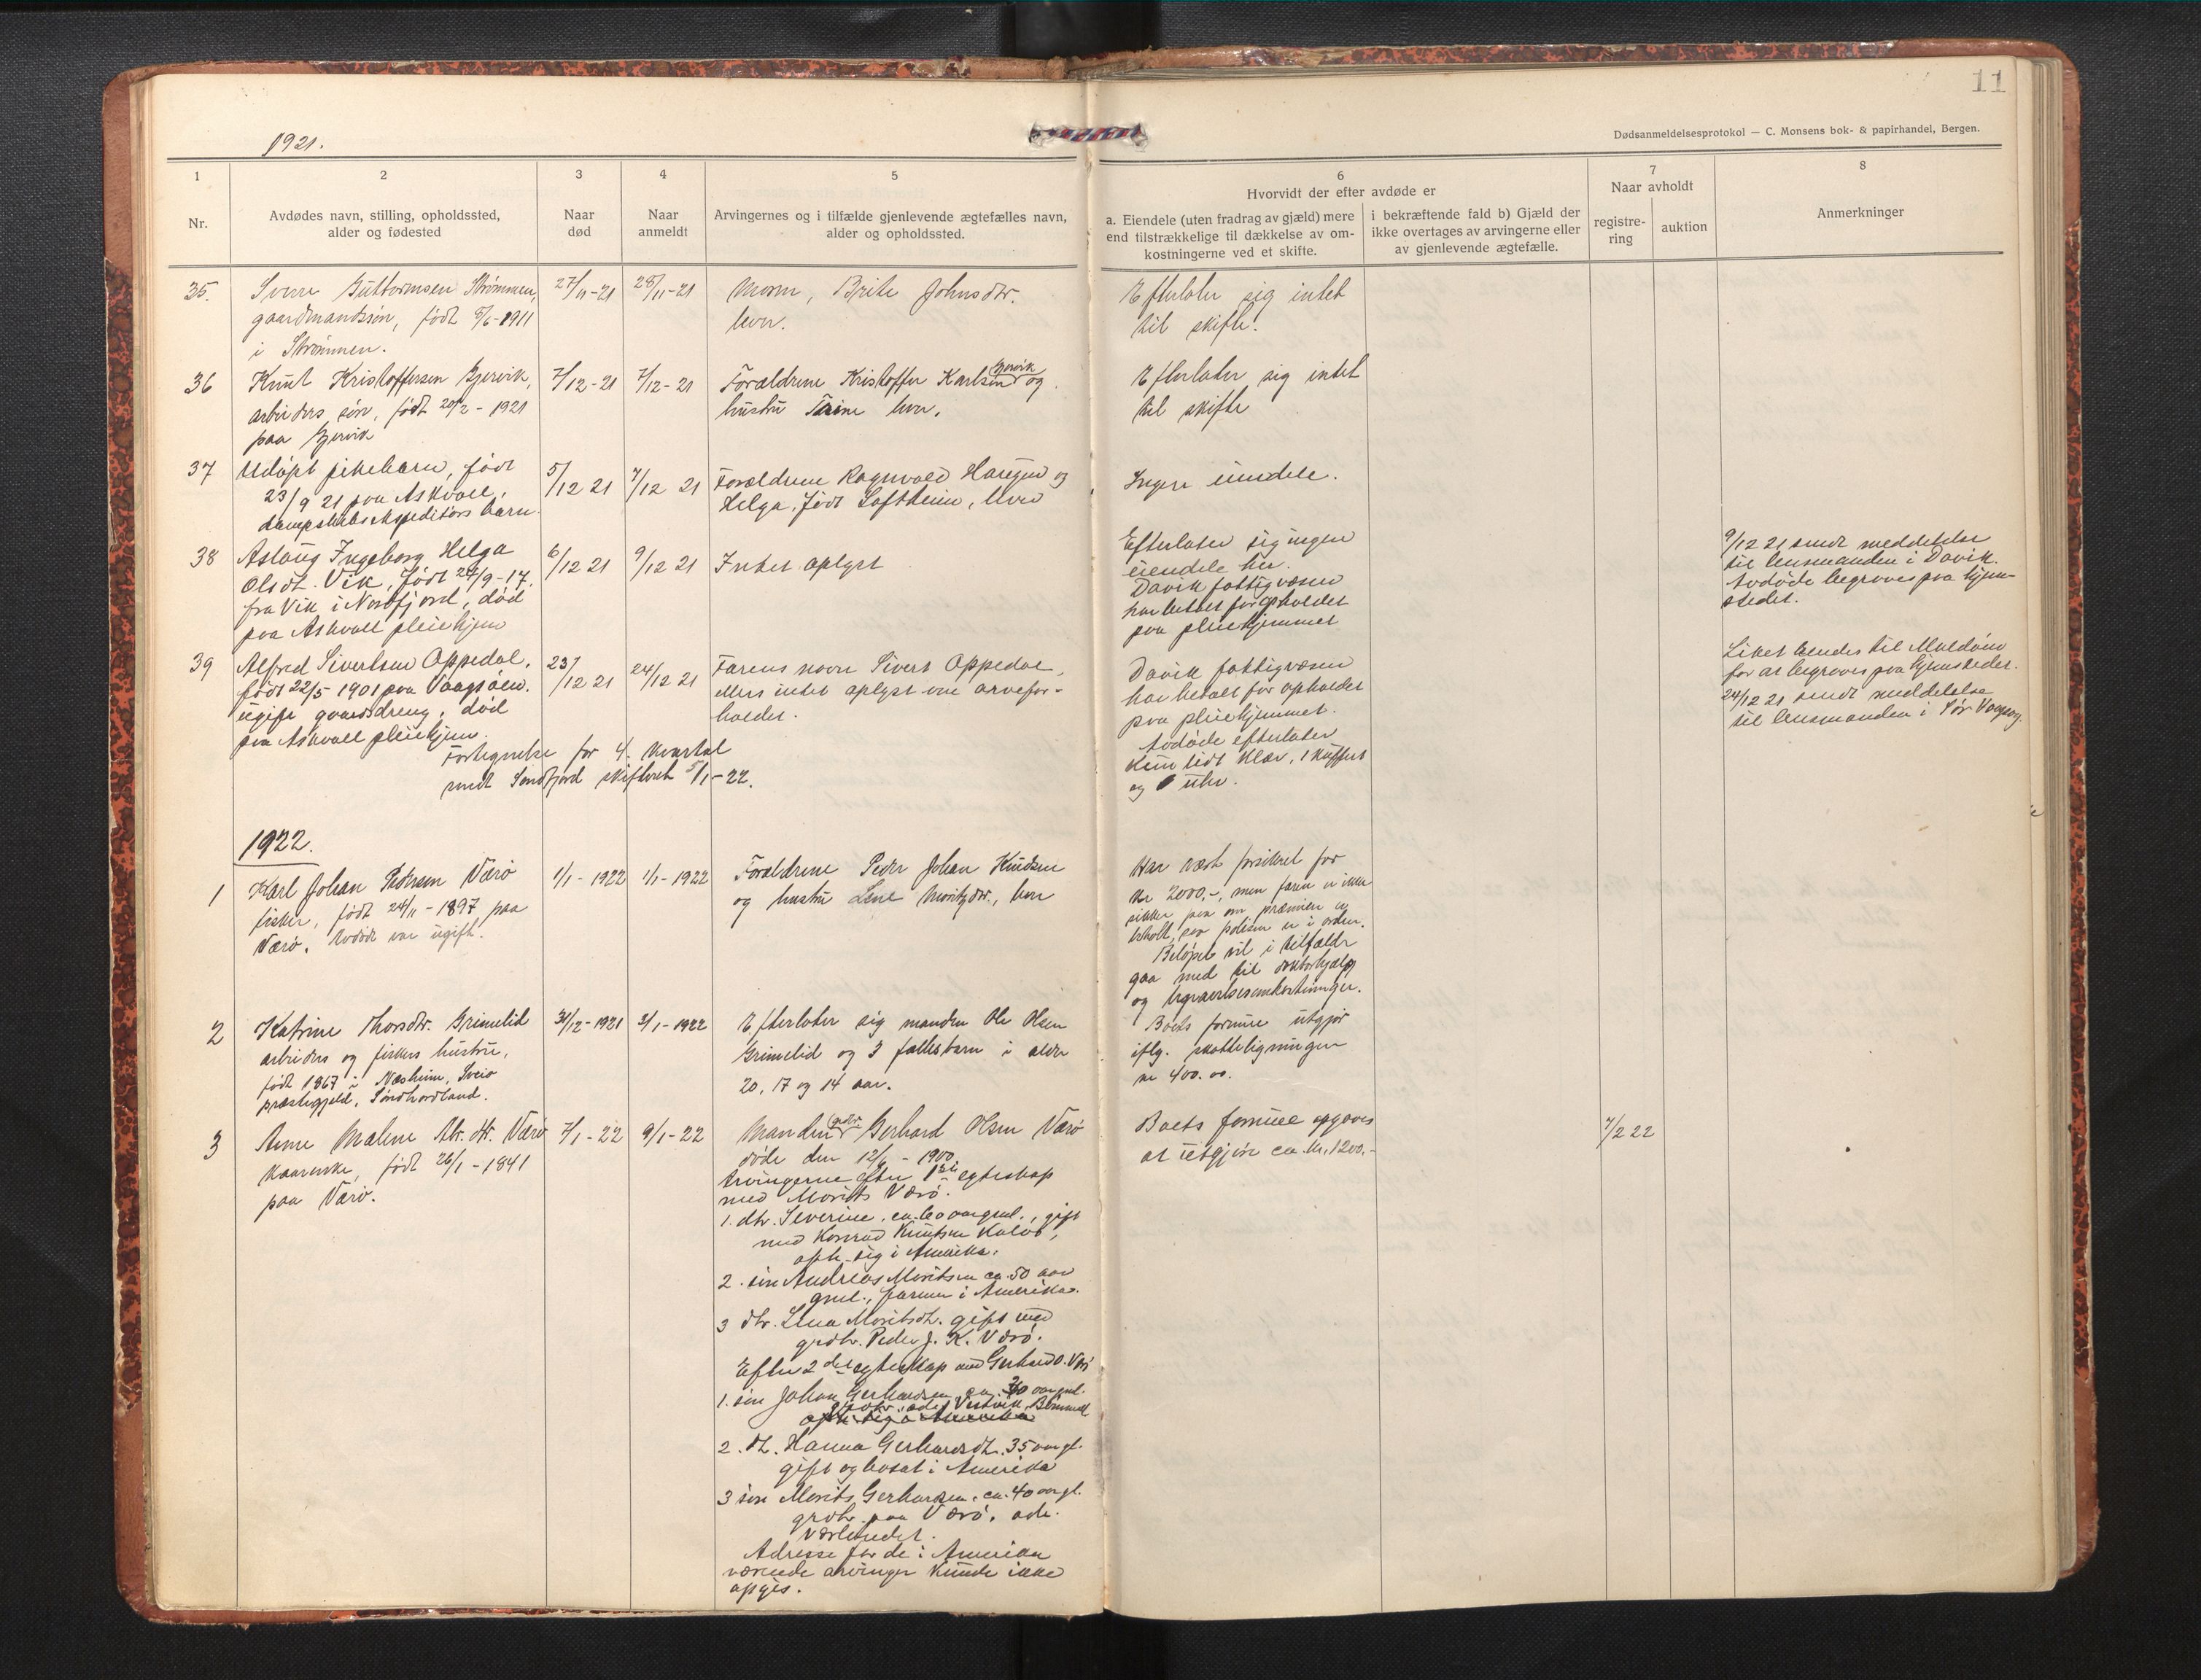 11
1921.
Dødsanmeldelsesprotokol — C. Monsens bok- & papirhandel, Bergen.
1
2
3
4
5
6
7
8
Nr.
Avdødes navn, stilling, opholdssted,
alder og fødested
Naar
død
Naar
anmeldt
Arvingernes og i tilfælde gjenlevende ægtefælles navn,
alder og opholdssted.
Hvorvidt der efter avdøde er
a. Eiendele (uten fradrag av gjæld) mere
end tilstrækkelige til dækkelse av om-
kostningerne ved et skifte.
i bekræftende fald b) Gjæld der
ikke overtages av arvingerne eller
av gjenlevende ægtefælle.
Naar avholdt
registre-
ring
auktion
Anmerkninger
35.
Sverre Guttormsen Strømmen,
gaardmandssøn, født 8/6-1911
i Strømmen.
27/11-21
28/11-21
Moren, Brite Johnsdtr.
lever.
Efterlater sig intet
til skifte.
36
Knut Kristoffersen Gjervik,
arbeiders søn, født 20/2-1921
paa Gjervik
7/12-21
7/12-21
Forældrene Kristoffer Karlsen Gjervik og
hustru Trine lever.
Efterlater sig intet
til skifte
37
Udøpt pikebarn, født
23/9 21 paa Askvoll,
dampskibsekspeditørs barn.
5/12 21
7/12 21
Forældrene Ragnvald Haugen og
Helga, født Loftheim, lever
Ingen eiendele.
38
Aslaug Ingeborg Helga
Olsdt. Vik, født 24/9-17.
fra Vik i Nordfjord, død
paa Askvoll pleiehjem
6/12 21
9/12 21
Intet oplyst
Efterlater sig ingen
eiendele her.
Davik fattigvæsen
har betalt for opholdet
paa pleiehjemmet
9/12 21 sendt meddelelse
til lensmanden i Davik.
Avdøde begraves paa hjem-
stedet.
39
Alfred Sivertsen Oppedal,
født 22/5 1901 paa Vaagsøen.
ugift gaardsdreng, død
paa Askvoll pleiehjem.
23/12 21
24/12 21
Farens navn Sivert Oppedal,
ellers intet oplyst om arvefor-
holdet.
Davik fattigvæsen
har betalt for opholdet
paa pleiehjemmet.
Avdøde efterlater
kun lidt klær, 1 kuffert
og 1 uhr.
Liket sendes til Maaløen
for at begraves paa hjemstedet.
24/12 21 sendt meddelelse
til lensmanden i Sør Vaagsøy.
Fortegnelse for 4. kvartal
sendt Søndfjord skifteret 5/1-22.
1922.
1
Karl Johan Pedersen Værø
fisker, født 24/11-1897 paa
Værø. Avdøde var ugift.
1/1-1922
1/1-1922
Forældrene Peder Johan Knudsen
og hustru Lene Moritzdtr., lever
Har vært forsikret for
kr 2000,-, men faren er ikke
sikker paa om præmien er
betalt, saa polisen er i orden.
Beløpet vil i tilfælde
gaa med til doktorhjælp
og begravelsesomkostninger.
2
Katrine Thorsdtr. Grimelid
arbeiders og fiskers hustru,
født 1867 i Næsheim, Sveio
præstegjeld, Søndhordland.
31/12-1921
3/1-1922
Efterlater sig manden Ole Olsen
Grimelid og 3 fællesbarn i alder
20, 17 og 14 aar.
Boets formue utgjør
iflg. skatteligningen
kr 400.00.
3
Anne Malene Abr. dtr. Værø
kaarenke, født 26/1-1841
paa Værø.
7/1-22
9/1-22
Manden gdbr. Gerhard Olsen Værø
døde den 12/6-1900.
Arvingerne efter 1ste egteskap
med Morits Værø.
1. dtr. Severine, ca. 60 aar gml., gift
med Konrad Knutsen Kalvø,
oph. sig i Amerika.
2. søn Andreas Moritsen ca. 50 aar
gml., farmer i Amerika.
3 dtr. Lena Moritsdt. gift med
grdbr. Peder J. K. Værø.
Efter 2det egteskap med Gerhard O. Værø
1. søn Johan Gerhardsen, ca. 30 aar gml.
grdbr. adr. Vestvik, Bømmel
oph. sig i Amerika
2. dt. Hanna Gerhardsdt. 35 aar gl.
gift og bosat i Amerika
3 søn Morits Gerhardsen, ca. 40 aar gl.
grdbr. paa Værø, adr.
Værlandet.
Adresse for de i Amerika
værende arvinger kunde ikke
opgis.
Boets formue opgaves
at utgjøre ca. kr. 1200.-
7/2 22